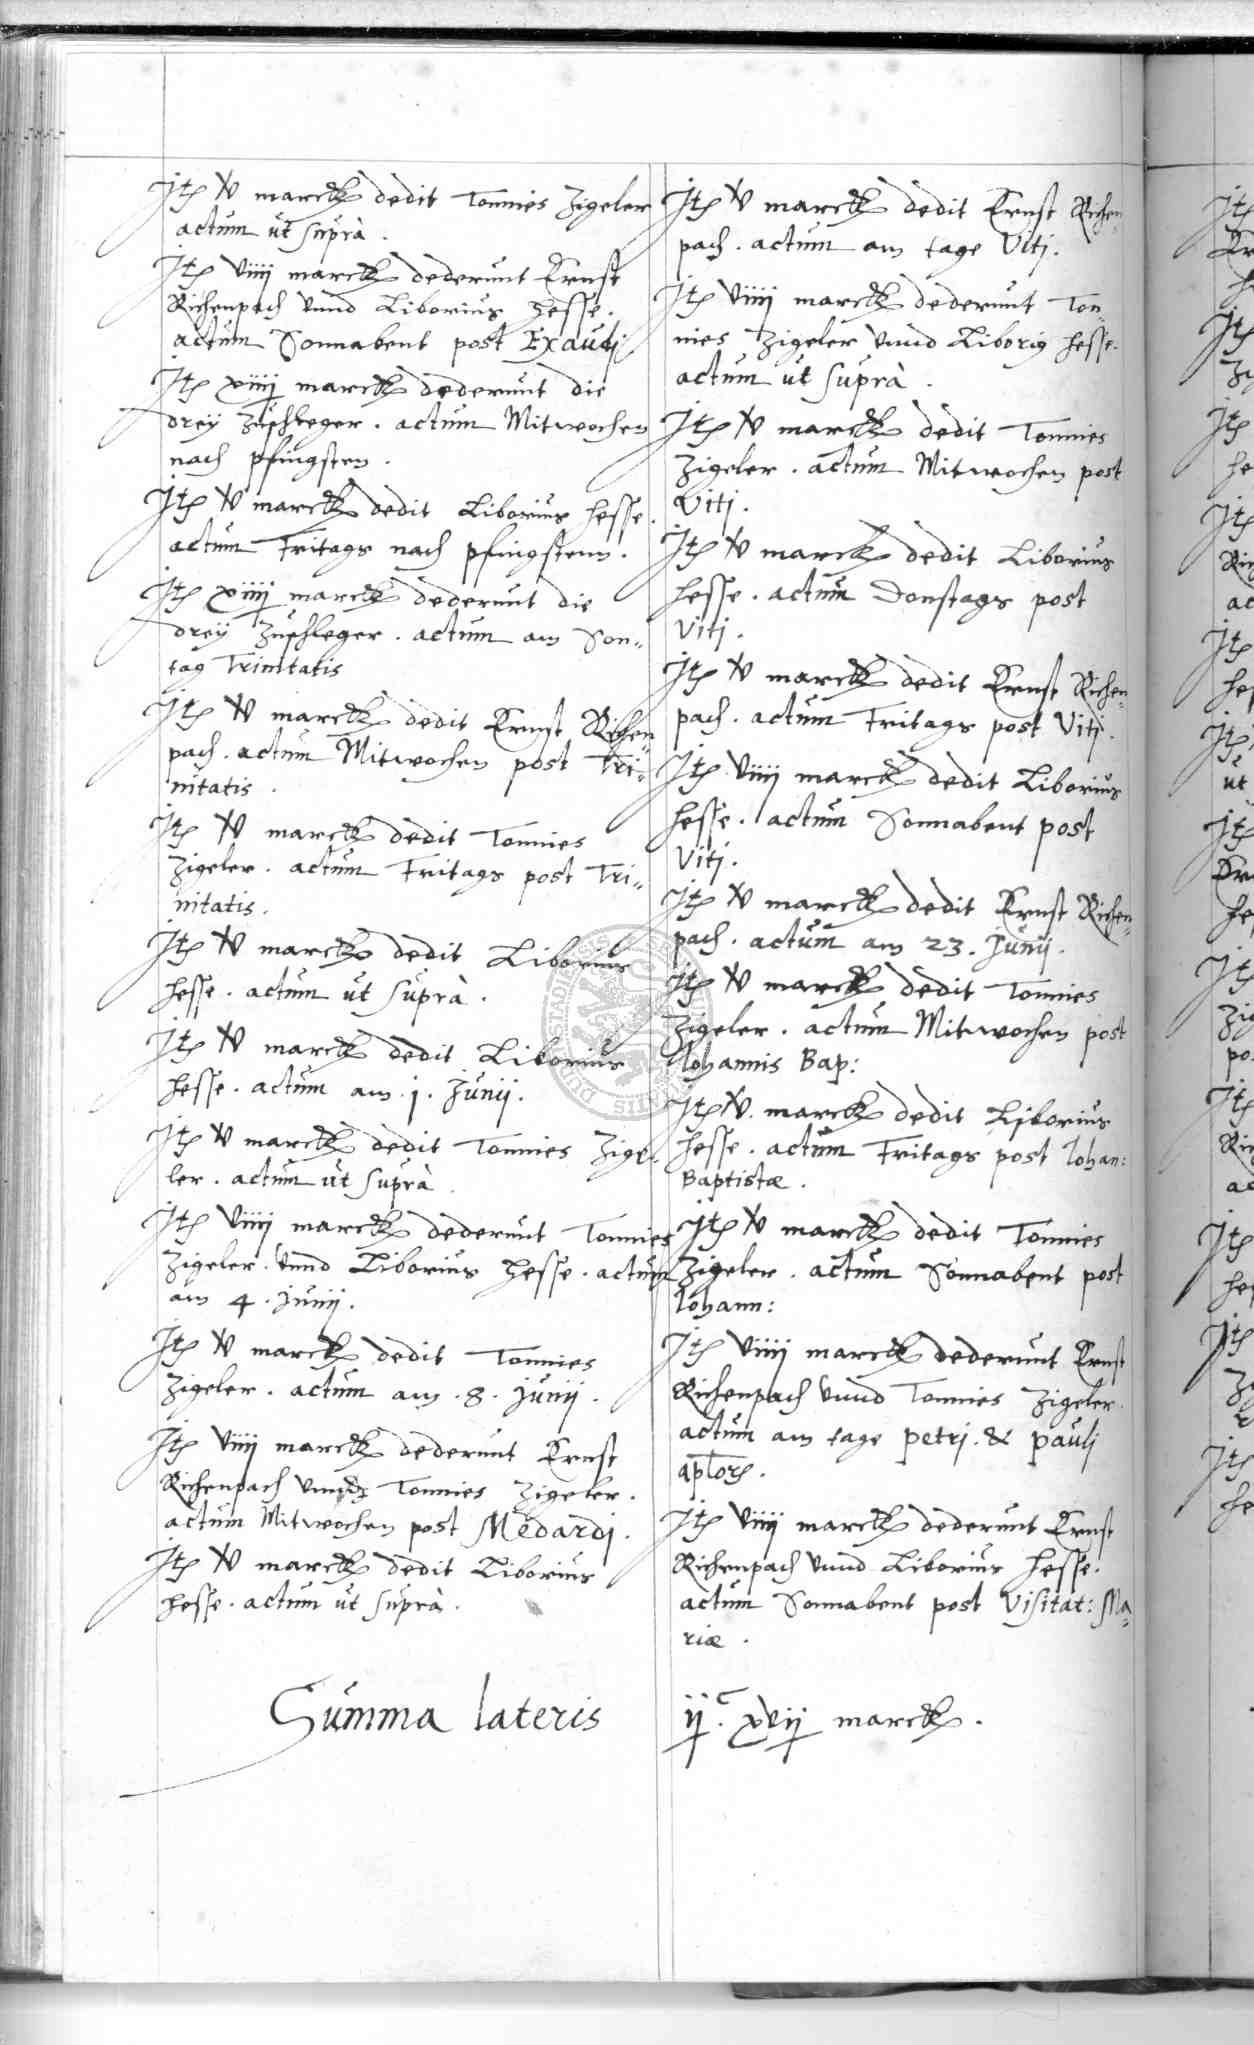 Itē v̶ marck dedit Tonnies Zigeler
actum ut suprà.
Itē viiij marck dederunt Ernst
Richenpach vnnd Liborius Hesse.
actum Sonnabent post Exaudj
Itē xiiij marck dederunt die
drey Zuschleger. actum Mitwochen
nach pfingsten.
Itē v̶ marck dedit Liborius Hesse.
actum Fritags nach pfingstenn.
Itē xiiij marck dederunt die
drey Zuschleger. actum am Son„
tag Trinitatis
Itē v̶ marck dedit Ernst Richen„
pach. actum Mitwochen post Tri„
nitatis.
Itē v̶ marck dedit Tonnies
Zigeler. actum Fritags post Tri„
nitatis.
Itē v̶ marck dedit Liborius
Hesse. actum ut suprà.
Itē v̶ marck dedit Liborius
Hesse. actum am .j. Junij.
Itē v̶ marck dedit Tonnies Zige„
ler. actum ut suprà.
Itē viiij marck dederunt Tonnies
Zigeler. vnnd Liborius Hesse. actum
am 4. Junij.
Itē v̶ marck dedit Tonnies
Zigeler. actum am .8. Junij.
Itē viiij marck dederunt Ernst
Richenpach vnnd Tonnies Zigeler.
actum Mitwochen post Medardj.
Itē v̶ marck dedit Liborius
Hesse. actum ut suprà.
Summa lateris
Itē v̶ marck dedit Ernst Richen„
pach. actum am tage Vitj.
Itē viiij marck dederunt Ton„
nies Zigeler vnnd Liborig Hesse.
actum ut suprà.
Itē v̶ marck dedit Tonnies
Zigeler. actum Mitwochen post
Vitj.
Itē v̶ marck dedit Liborius
Hesse. actum Donstags post
Vitj.
Itē v̶ marck dedit Ernst Richen„
pach. actum Fritags post Vitj.
Itē viiij marck dedit Liborius
Hesse. actum Sonnabent post
Vitj.
Itē v̶ marck dedit Ernst Richen„
pach. actum am 23. Junij.
Itē v̶ marck dedit Tonnies
Zigeler. actum Mitwochen post
Iohannis Bap:
Itē v̶ marck dedit Liborius
Hesse. actum Fritags post Iohan:
Baptistæ.
Itē v̶ marck dedit Tonnies
Zigeler. actum Sonnabent post
Iohann:
Itē viiij marck dederunt Ernst
Richenpach vnnd Tonnies Zigeler.
actum am tage petrj. & paulj
aplor̃.
Itē viiij marck dederunt Ernst
Richenpach vnnd Liborius Hesse.
actum Sonnabent post Visitat: Ma„
riæ.
ijᶜ. xvij marck.